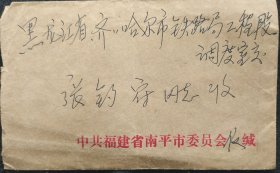 黑龙江省齐齐哈尔市铁路局工程段
调度室交
张钧 同志收
中共福建省南平市委员会 缄